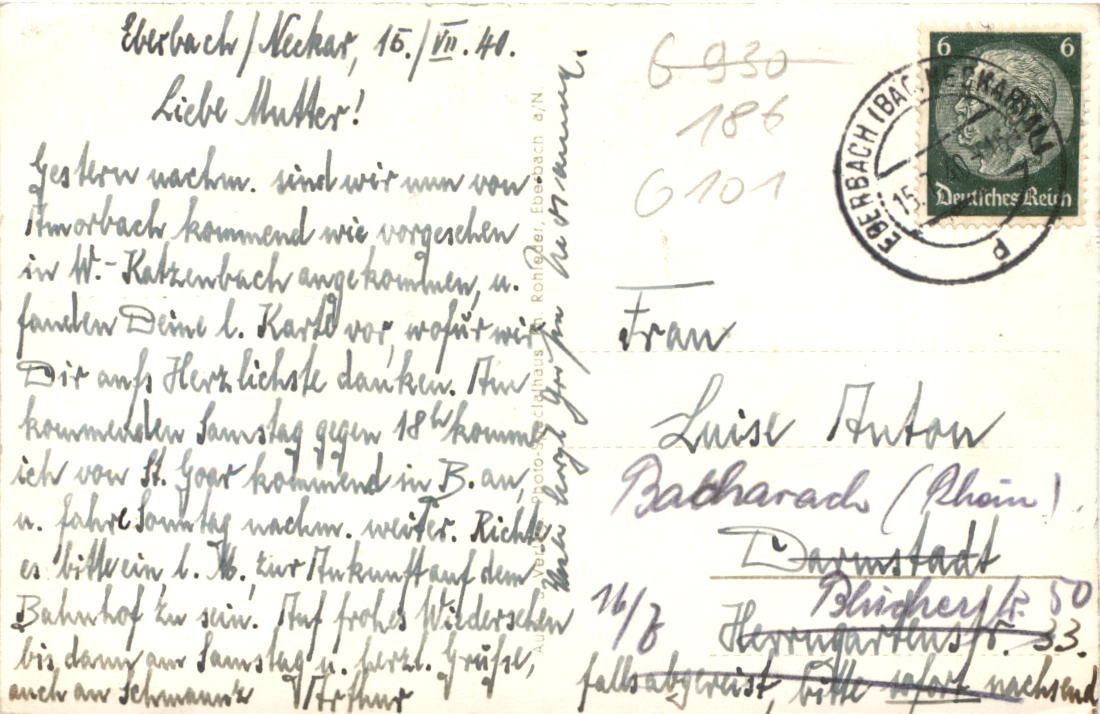 Eberbach/Neckar, 15./VII.40.
Liebe Mutter!
Gestern nachm. sind wir nun von
Amorbach kommend wie vorgesehen
in W.-Katzenbach angekommen, u.
fanden Deine l. Karte vor, wofür wir
Dir aufs Herzlichste danken. Am
kommenden Samstag gegen 18h komme
ich von St. Goar kommend in B. an,
u. fahre Sonntag nachm. weiter. Richte
es bitte ein l. M., zur Ankunft auf dem
Bahnhof zu sein. Auf frohes Wiedersehen
bis dann am Samstag u. herzl. Grüße,
auch an Schmann's Arthur
Photo-Spezialhaus Rohleder, Eberbach a/N
herzl. Grüße
6 930
186
6 101
6 6
Deutsches Reich
EBERBACH (BADEN)
15.
d
Frau
Luise Anton
Bacharach (Rhein)
Darmstadt
Blücherstr. 50
16/7
Herrngartenstr. 33.
falls abgereist, bitte sofort nachsend